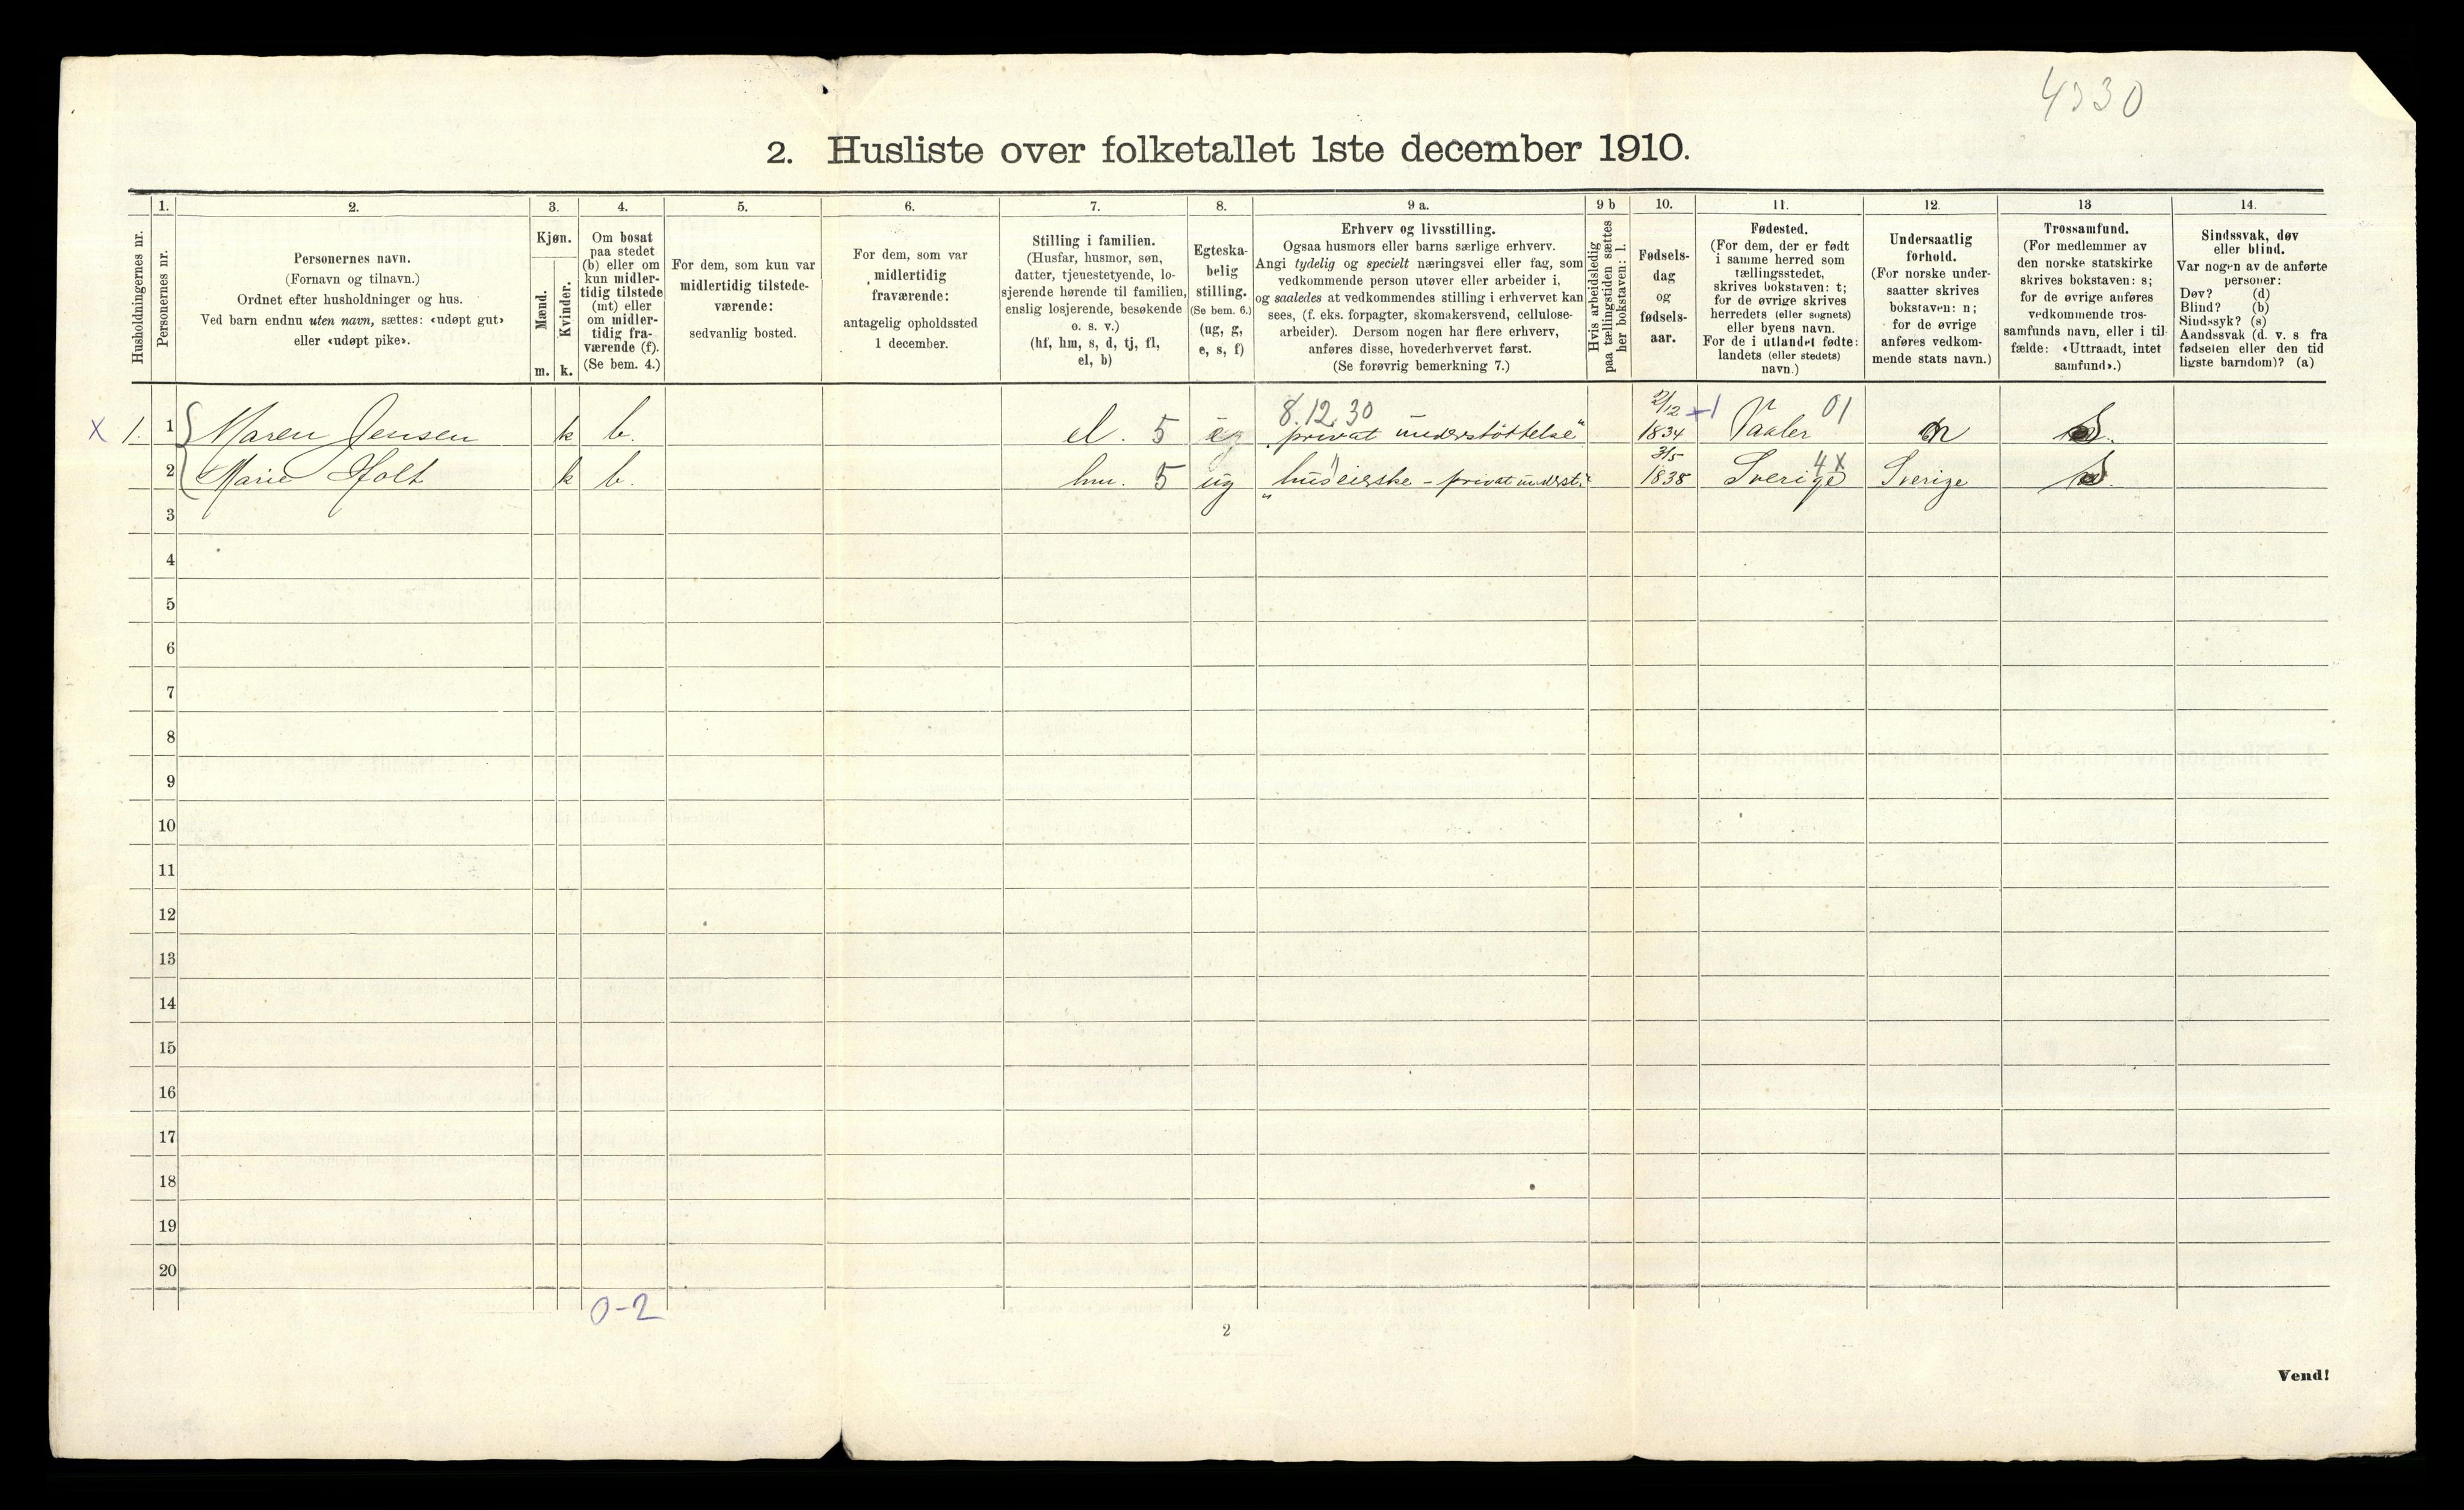 4330
2. Husliste over folketallet 1ste december 1910.
1. 2. 3. 4. 5. 6. 7. 8. 9 a. 9 b 10. 11. 12. 13 14.
Husholdningernes nr.
Personernes nr.
Personernes navn.
(Fornavn og tilnavn.)
Ordnet efter husholdninger og hus.
Ved barn endnu uten navn, sættes: «udøpt gut»
eller «udøpt pike».
Kjøn.
Mænd.
Kvinder.
m. k.
Om bosat
paa stedet
(b) eller om
kun midler-
tidig tilstede
(mt) eller
om midler-
tidig fra-
værende (f).
(Se bem. 4.)
For dem, som kun var
midlertidig tilstede-
værende:
sedvanlig bosted.
For dem, som var
midlertidig
fraværende:
antagelig opholdssted
1 december.
Stilling i familien.
(Husfar, husmor, søn,
datter, tjenestetyende, lo-
sjerende hørende til familien,
enslig losjerende, besøkende
o. s. v.)
(hf, hm, s, d, tj, fl,
el, b)
Egteska-
belig
stilling.
(Se bem. 6.)
(ug, g,
e, s, f)
Erhverv og livsstilling.
Ogsaa husmors eller barns særlige erhverv.
Angi tydelig og specielt næringsvei eller fag, som
vedkommende person utøver eller arbeider i,
og saaledes at vedkommendes stilling i erhvervet kan
sees, (f. eks. forpagter, skomakersvend, cellulose-
arbeider). Dersom nogen har flere erhverv,
anføres disse, hovederhvervet først.
(Se forøvrig bemerkning 7.)
Hvis arbeidsledig
paa tællingstiden sættes
her bokstaven: l.
Fødsels-
dag
og
fødsels-
aar.
Fødested.
(For dem, der er født
i samme herred som
tællingsstedet,
skrives bokstaven: t;
for de øvrige skrives
herredets (eller sognets)
eller byens navn.
For de i utlandet fødte:
landets (eller stedets)
navn.)
Undersaatlig
forhold.
(For norske under-
saatter skrives
bokstaven: n;
for de øvrige
anføres vedkom-
mende stats navn.)
Trossamfund.
(For medlemmer av
den norske statskirke
skrives bokstaven: s;
for de øvrige anføres
vedkommende tros-
samfunds navn, eller i til-
fælde: «Uttraadt, intet
samfund».)
Sindssvak, døv
eller blind.
Var nogen av de anførte
personer:
Døv? (d)
Blind? (b)
Sindssyk? (s)
Aandssvak (d. v. s fra
fødselen eller den tid
ligste barndom)? (a)
8.12.30 2/12 +1 01
x 1. 1 Maren Jensen k b. el. 5 „privat understøttelse“ 1834 Vaaler n S.
3/5 4x
2 Marie Holt k b. hm. 5 ug „huseierske - privat underst.“ 1838 Sverige Sverige S.
3
4
5
6
7
8
9
10
11
12
13
14
15
16
17
18
19
20
0-2
2
Vend!